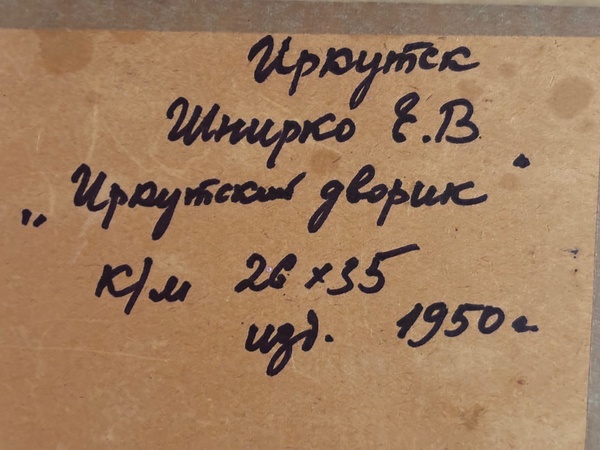 Иркутск
Шнирко Е.В.
„Иркутский дворик"
к/м 26×35
изд. 1950 г.